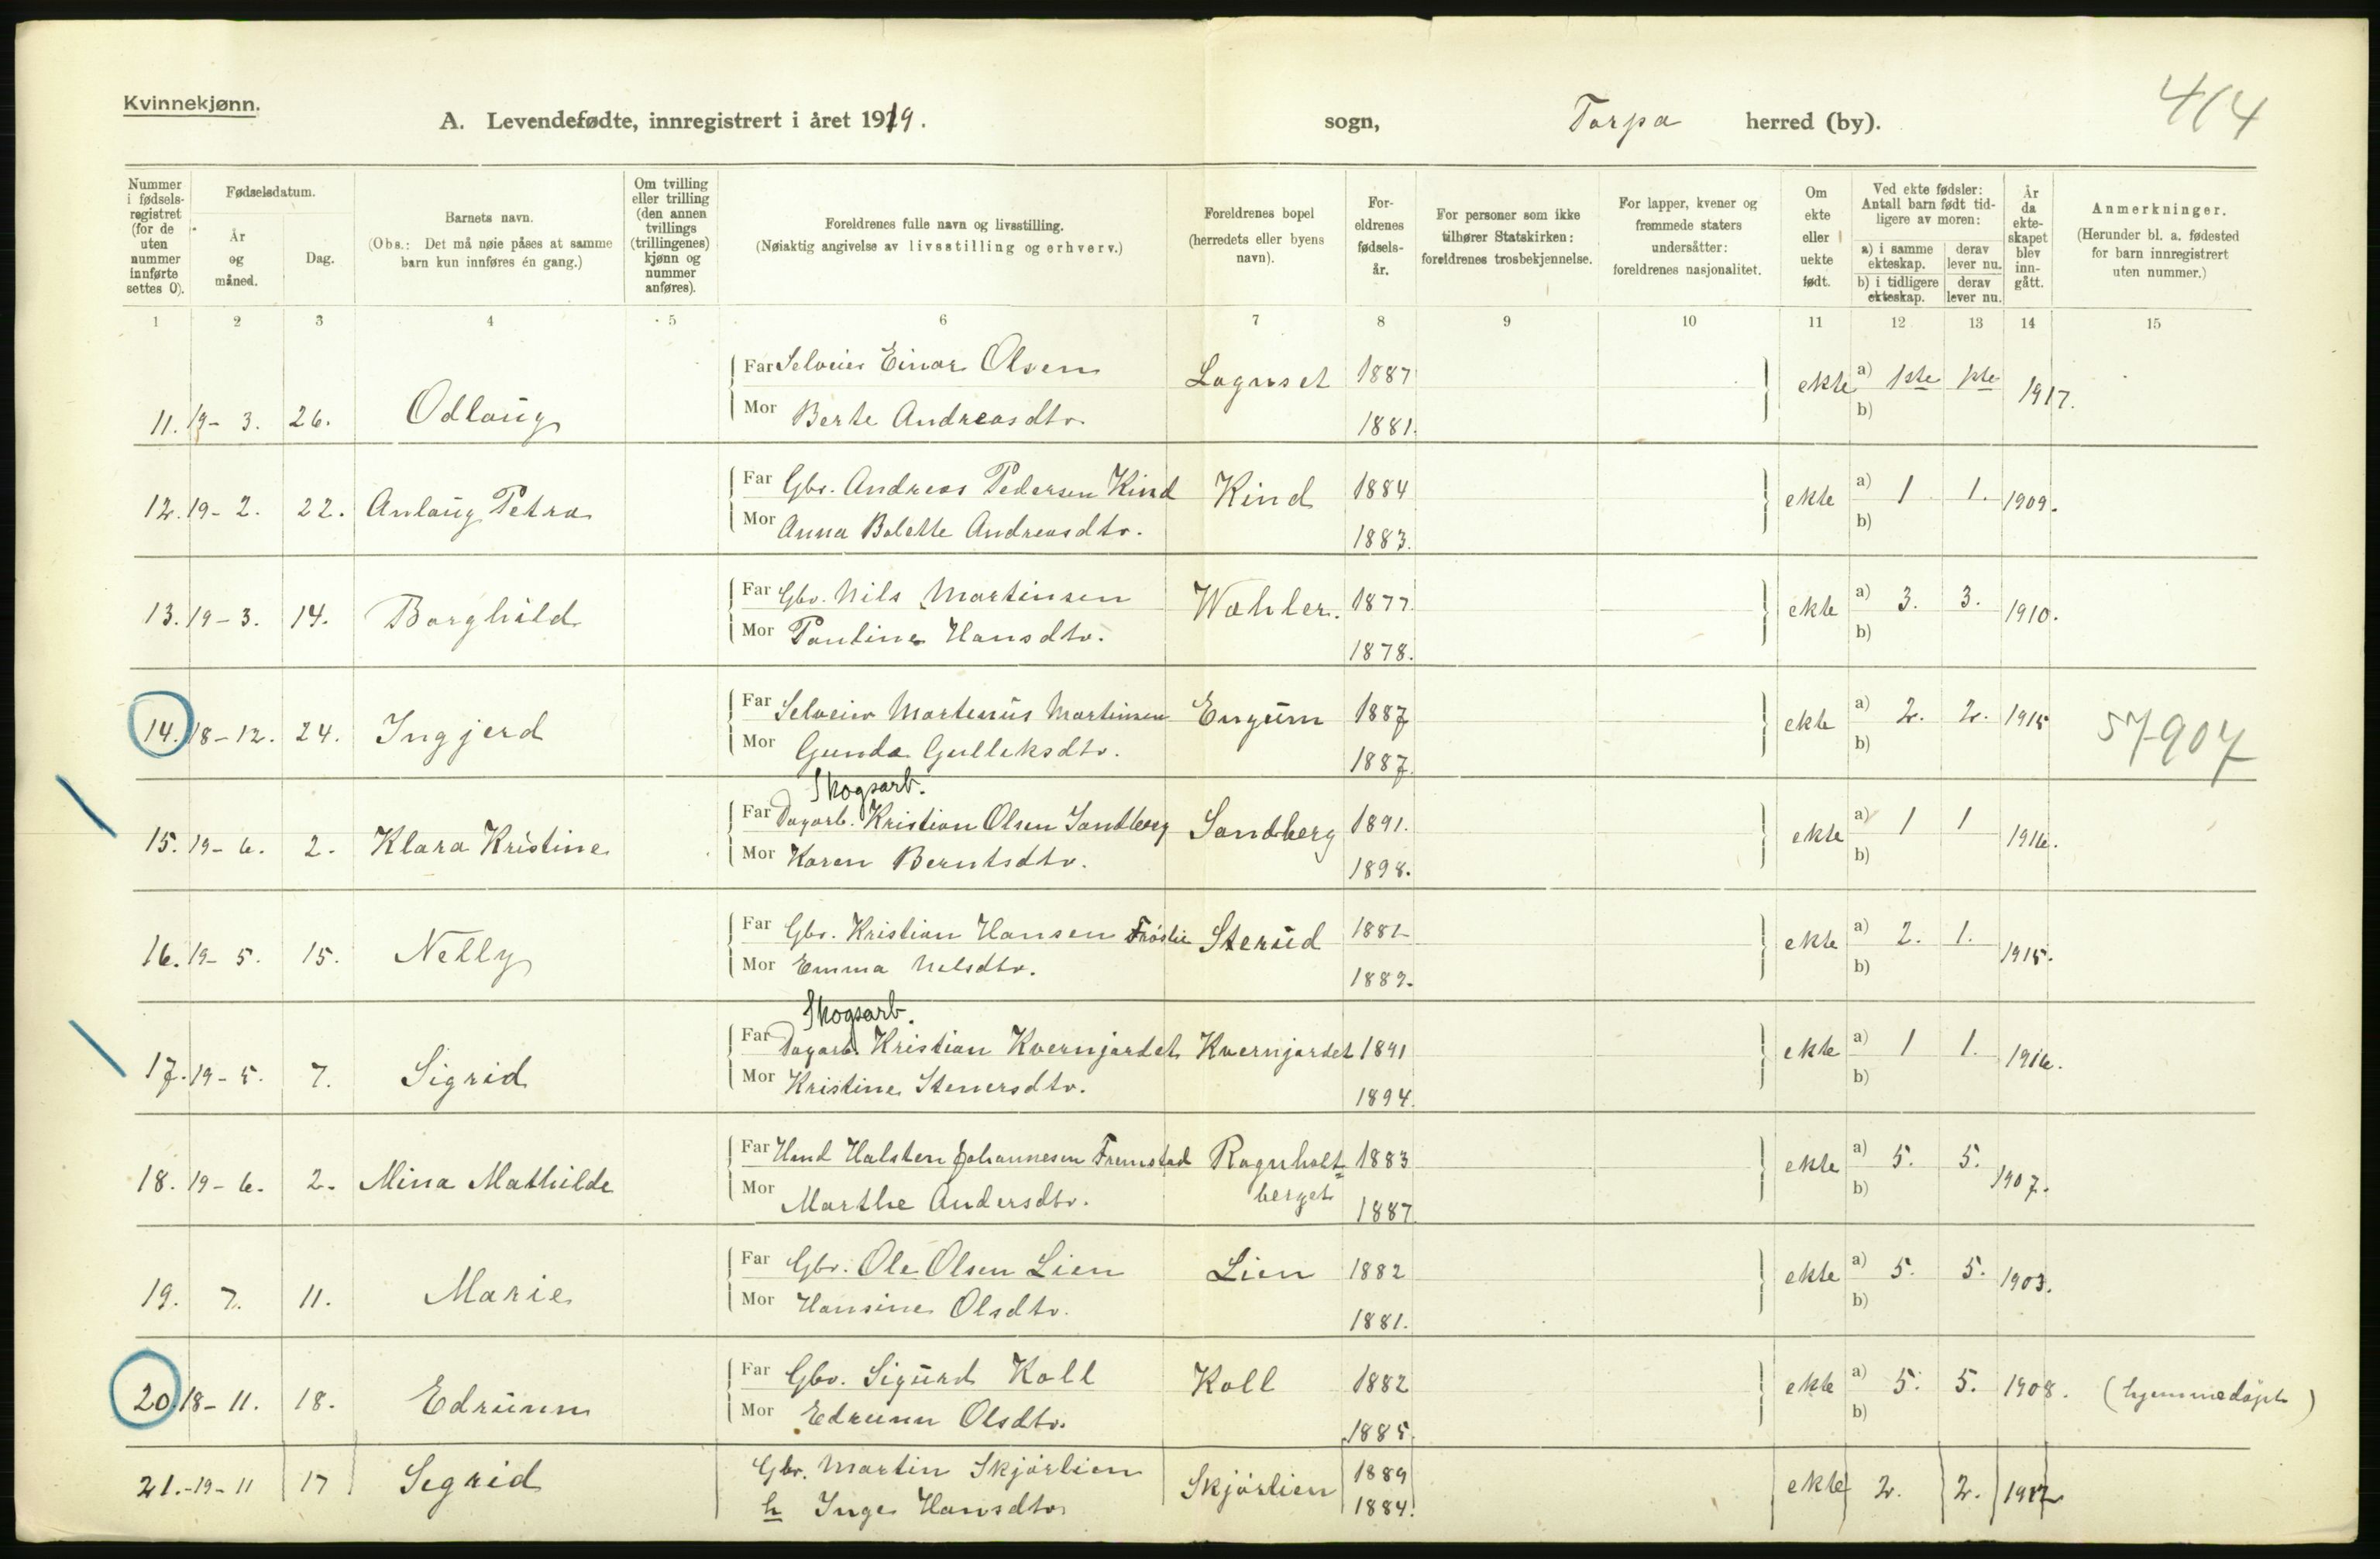 Kvinnekjønn.
A. Levendefødte, innregistrert i året 1919.
sogn, Torpa herred (by).
414
Nummer i fødselsregistret (for de uten nummer innførte settes 0).
Fødselsdatum.
År og måned.
Dag.
Barnets navn.
(Obs.: Det må nøie påses at samme barn kun innføres én gang.)
Om tvilling eller trilling (den annen tvillings (trillingenes) kjønn og nummer anføres).
Foreldrenes fulle navn og livsstilling.
(Nøiaktig angivelse av livsstilling og erhverv.)
Foreldrenes bopel (herredets eller byens navn).
Foreldrenes fødselsår.
For personer som ikke tilhører Statskirken: foreldrenes trosbekjennelse.
For lapper, kvener og fremmede staters undersåtter: foreldrenes nasjonalitet.
Om ekte eller uekte født.
Ved ekte fødsler: Antall barn født tidligere av moren:
a) i samme ekteskap. derav lever nu.
b) i tidligere ekteskap. derav lever nu.
År da ekteskapet blev inngått.
Anmerkninger.
(Herunder bl. a. fødested for barn innregistrert uten nummer.)
1 2 3 4 5 6 7 8 9 10 11 12 13 14 15
11. 19- 3. 26. Odlaug Far Selveier Einar Olsen Lognset 1887 ekte a) 1ste 1ste 1917.
Mor Berte Andreasdtr. 1881. b)
12. 19- 2. 22. Anlaug Petra Far Gbr. Andreas Pedersen Kind Kind 1884 ekte a) 1 1. 1909.
Mor Anna Bolette Andreasdtr. 1883. b)
13. 19- 3. 14. Borghild Far Gbr. Nils Martinsen Wøhler. 1877. ekte a) 3. 3. 1910.
Mor Pauline Hansdtr. 1878. b)
14. 18-12. 24. Ingjerd Far Selveier Martenus Martinsen Engum 1887 ekte a) 2. 2. 1915 57907
Mor Gunda Gulleksdtr. 1887. b)
Skogsarb.
15. 19- 6. 2. Klara Kristine Far Dagarb. Kristian Olsen Sandberg Sandberg 1891. ekte a) 1 1 1916.
Mor Karen Berntsdtr. 1898. b)
16. 19- 5. 15. Nelly Far Gbr. Kristian Hansen Frøslie Sterud 1882 ekte a) 2. 1. 1915.
Mor Emma Nilsdtr. 1889. b)
Skogsarb.
17. 19- 5. 7. Sigrid Far Dagarb. Kristian Kvernjordet Kvernjordet 1891 ekte a) 1 1. 1916.
Mor Kristine Stenersdtr. 1894. b)
18. 19- 6. 2. Mina Mathilde Far Hmd Halsten Johannesen Fremstad Ragnholt= 1883 ekte a) 5. 5. 1907.
Mor Marthe Andersdtr. berget 1887 b)
19. 7. 11. Marie Far Gbr. Ole Olsen Lien Lien 1882 ekte a) 5. 5. 1903.
Mor Hansine Olsdtr. 1881. b)
20. 18- 11. 18. Edrunn Far Gbr. Sigurd Koll Koll 1882 ekte a) 5. 5. 1908. (hjemmedøpt)
Mor Edrunn Olsdtr. 1885. b)
21.-19-11 17 Sigrid Gbr. Martin Skjørlien Skjørlien 1889 ekte 2. 2. 1917
h Inga Hansdtr 1884.